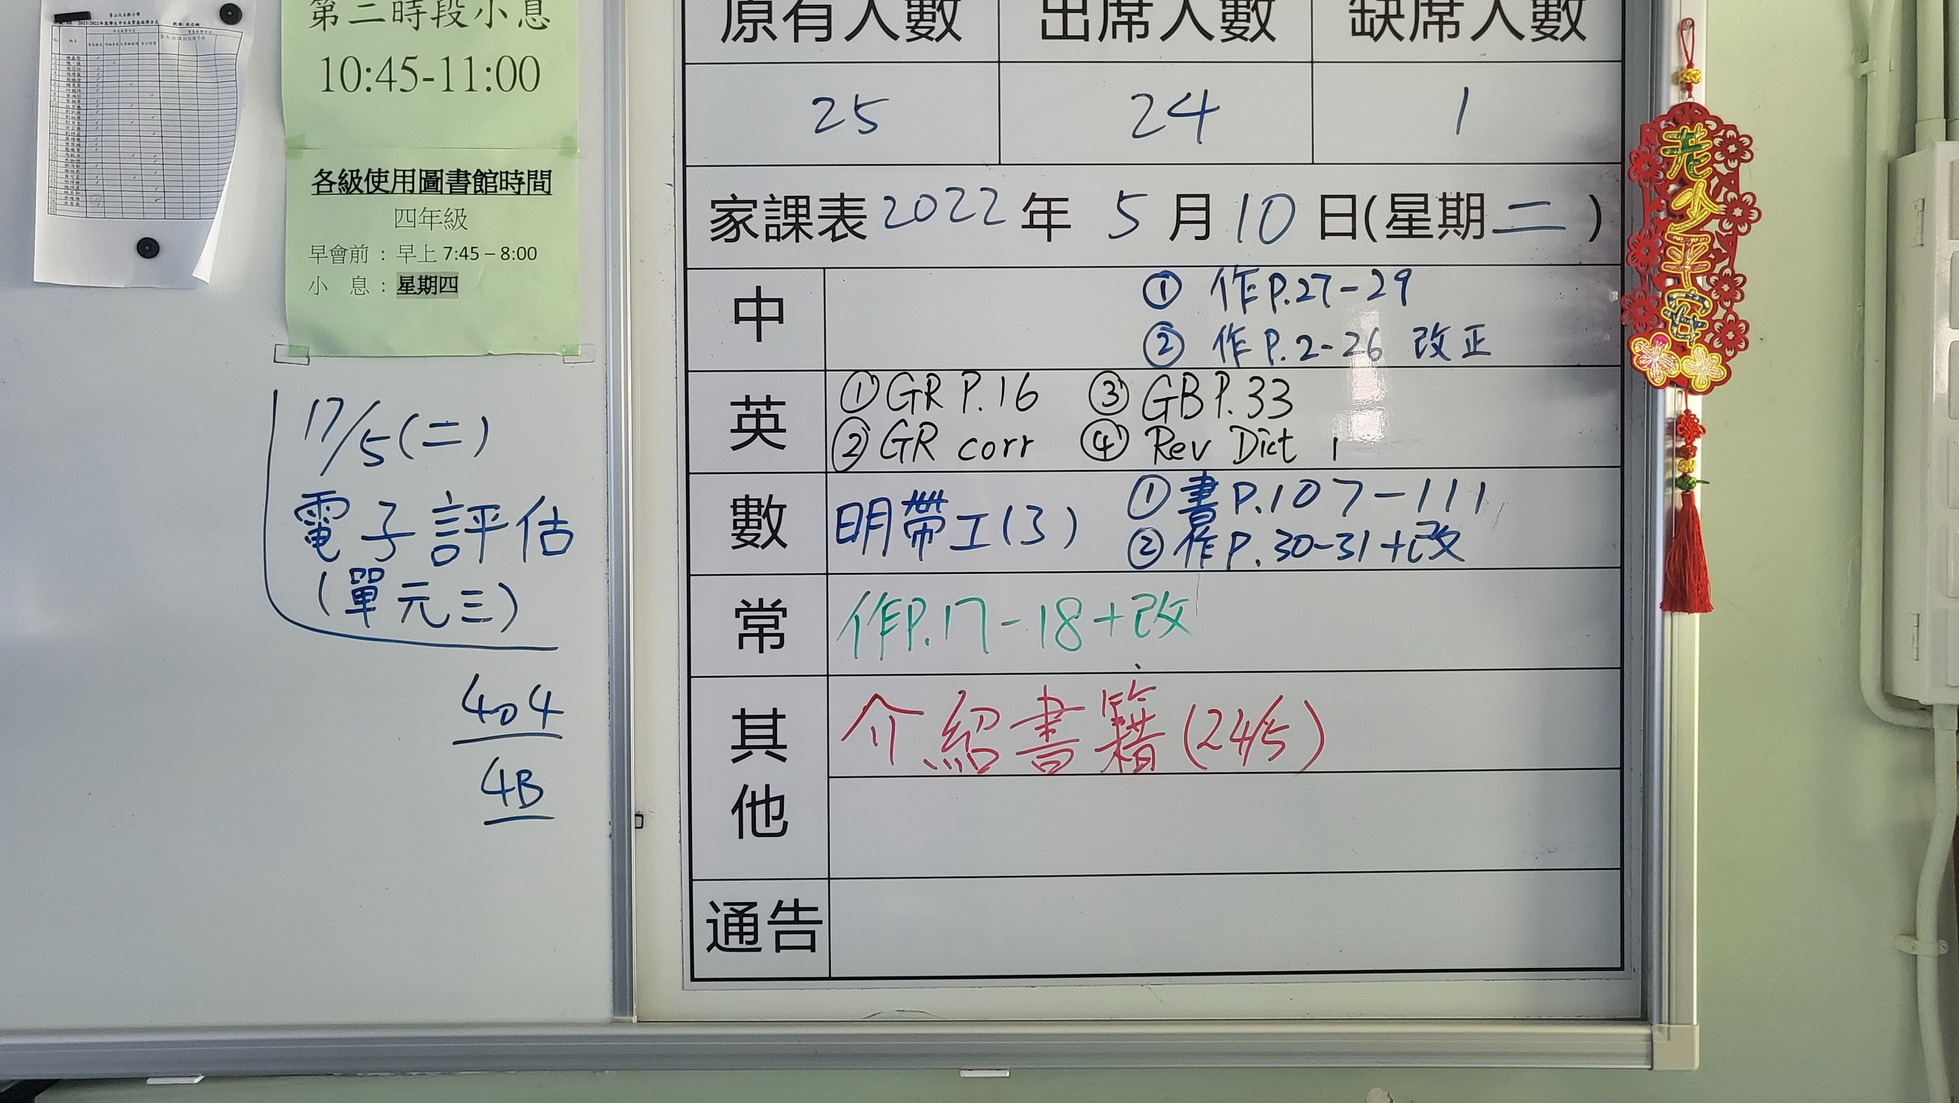 第二時段小息
10:45-11:00
各級使用圖書館時間
四年級
早會前 : 早上 7:45 – 8:00
小 息 : 星期四
17/5 (二)
電子評估
(單元三)
404
4B
原有人數 出席人數 缺席人數
25 24 1
家課表 2022 年 5 月 10 日(星期二)
中 ① 作P.27-29
② 作P.2-26 改正
英 ① GR P.16 ③ GB P.33
② GR corr ④ Rev Dict 1
數 明帶工(3) ① 書P.107-111
② 作P.30-31+改
常 作P.17-18+改
其他 介紹書籍(24/5)
通告
老少平安